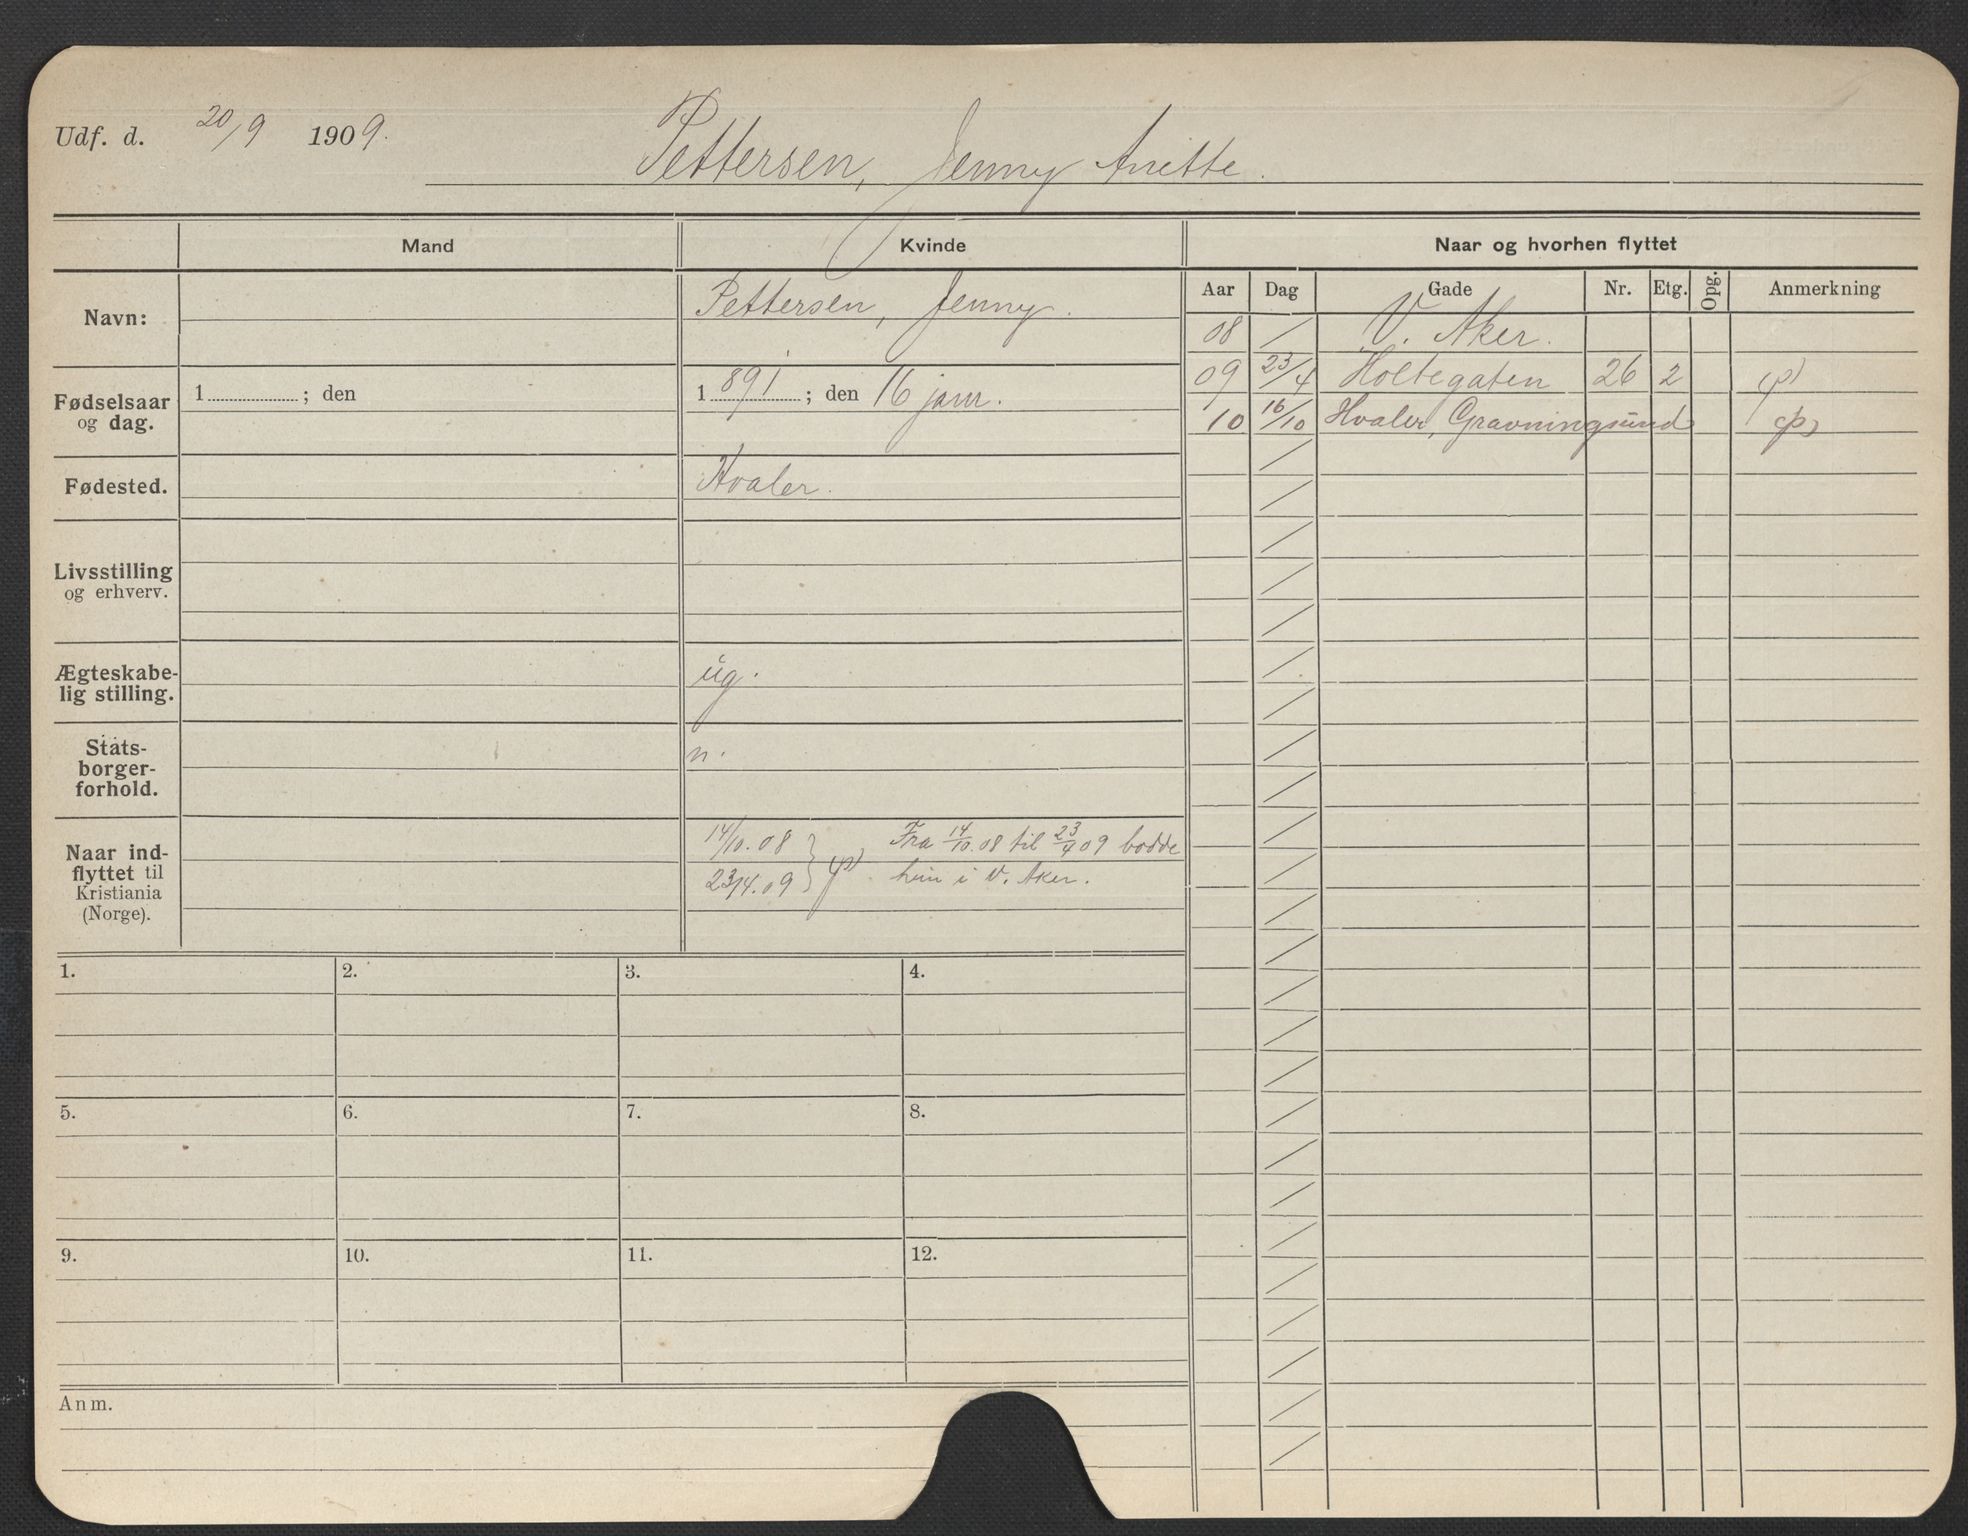 Udf. d. 20/9 1909.
Pettersen, Jenny Anitte.
Mand
Kvinde
Naar og hvorhen flyttet
Navn:
Pettersen, Jenny.
Aar Dag Gade Nr. Etg. Opg. Anmerkning
08 / V. Aker.
09 23/4 Holtegaten 26 2
10 16/10 Hvaler, Gravningsund
Fødselsaar
og dag.
1 ; den
1891 ; den 16 janr.
Fødested.
Hvaler.
Livsstilling
og erhverv.
Ægteskabe-
lig stilling.
ug.
Stats-
borger-
forhold.
n.
Naar ind-
flyttet til
Kristiania
(Norge).
14/10.08
23/4.09
Fra 14/10.08 til 23/4 09 bodde
hun i V. Aker.
1. 2. 3. 4.
5. 6. 7. 8.
9. 10. 11. 12.
Anm.